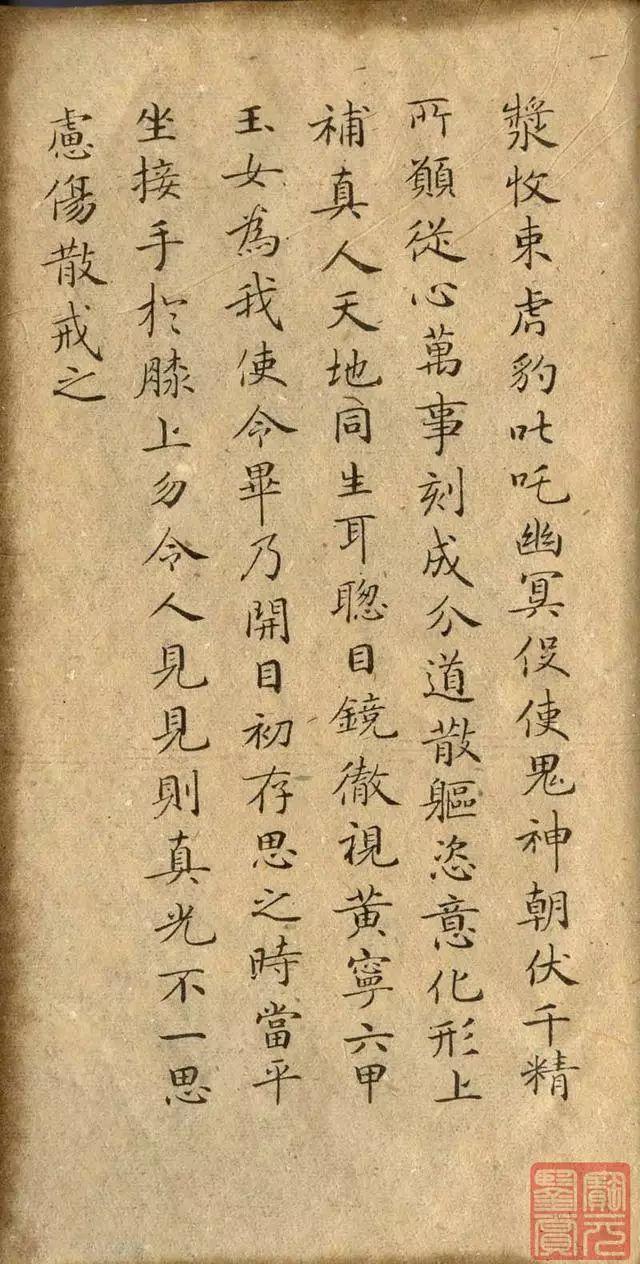 漿收束虎豹叱吒幽冥役使鬼神朝伏千精
所願從心萬事刻成分道散軀恣意化形上
補真人天地同生耳聰目鏡徹視黃寧六甲
玉女為我使令畢乃開目初存思之時當平
坐接手於膝上勿令人見見則真光不一思
慮傷散戒之
寶元鑒賞